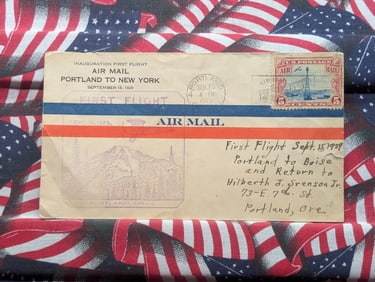 INAUGURATION FIRST FLIGHT
AIR MAIL
PORTLAND TO NEW YORK
SEPTEMBER 15, 1929
PORTLAND
SEP 15
4
U.S. POSTAGE
AIR MAIL
5 CENTS 5
FIRST FLIGHT
AIR MAIL
First Flight Sept. 15, 1929
Portland to Boise
and Return to
Hilberth J. Svenson Jr.
73-E 7th St
Portland, Ore
PORTLAND, ORE